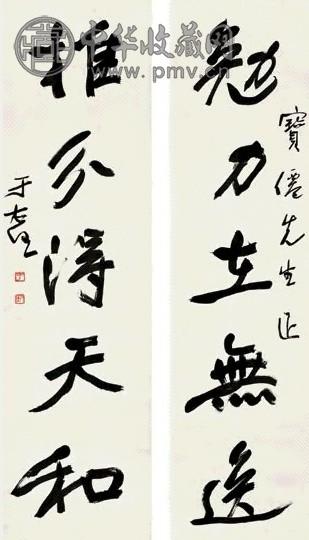 中华收藏网
www.pmv.cn
寶僊先生正
勉力在無逸
推分得天和
于右任